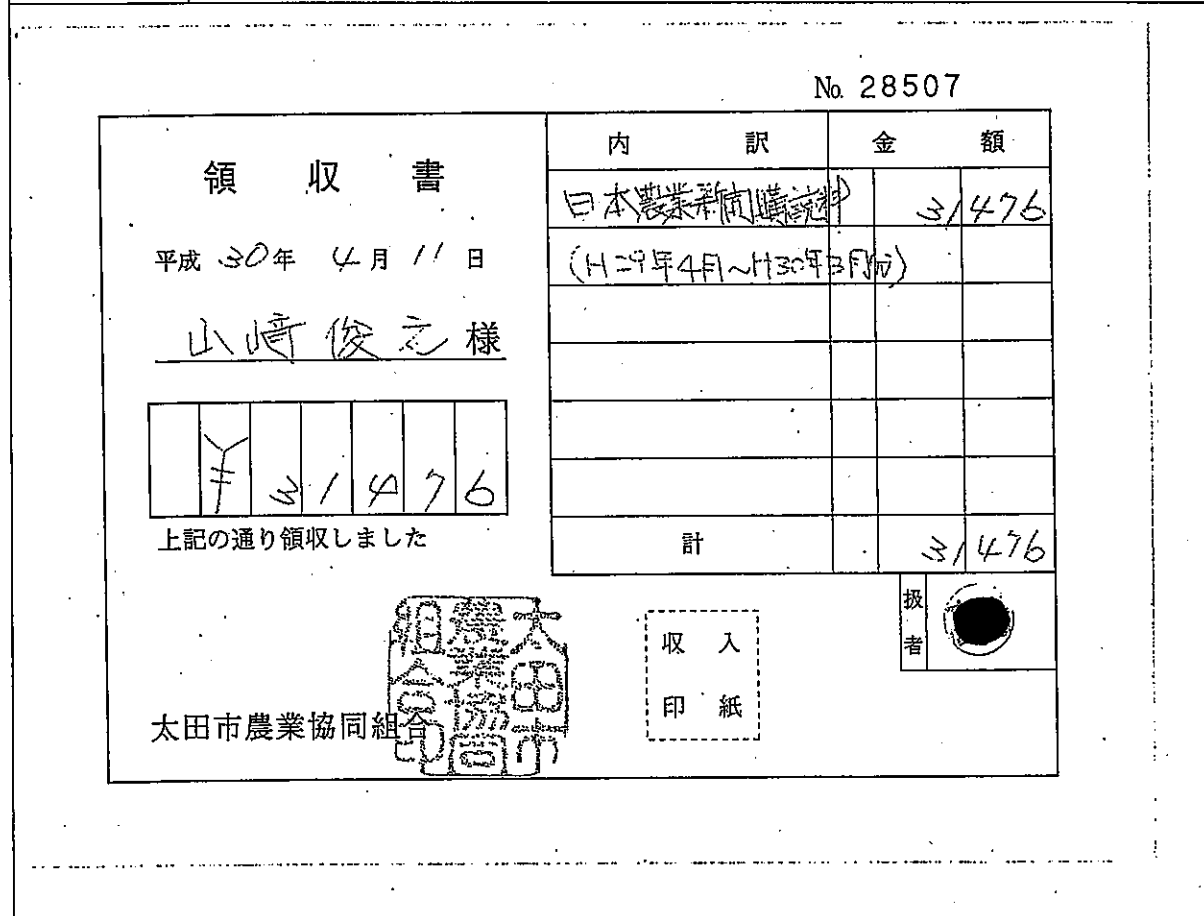 No. 28507
領収書
平成 30年 4月 11日
山﨑俊之様
¥31476
上記の通り領収しました
太田市農業協同組合
太田市農業協同組合印
内訳 金額
日本農業新聞購読料 31 476
(H29年4月~H30年3月分)
計 31 476
収入
印紙
扱者